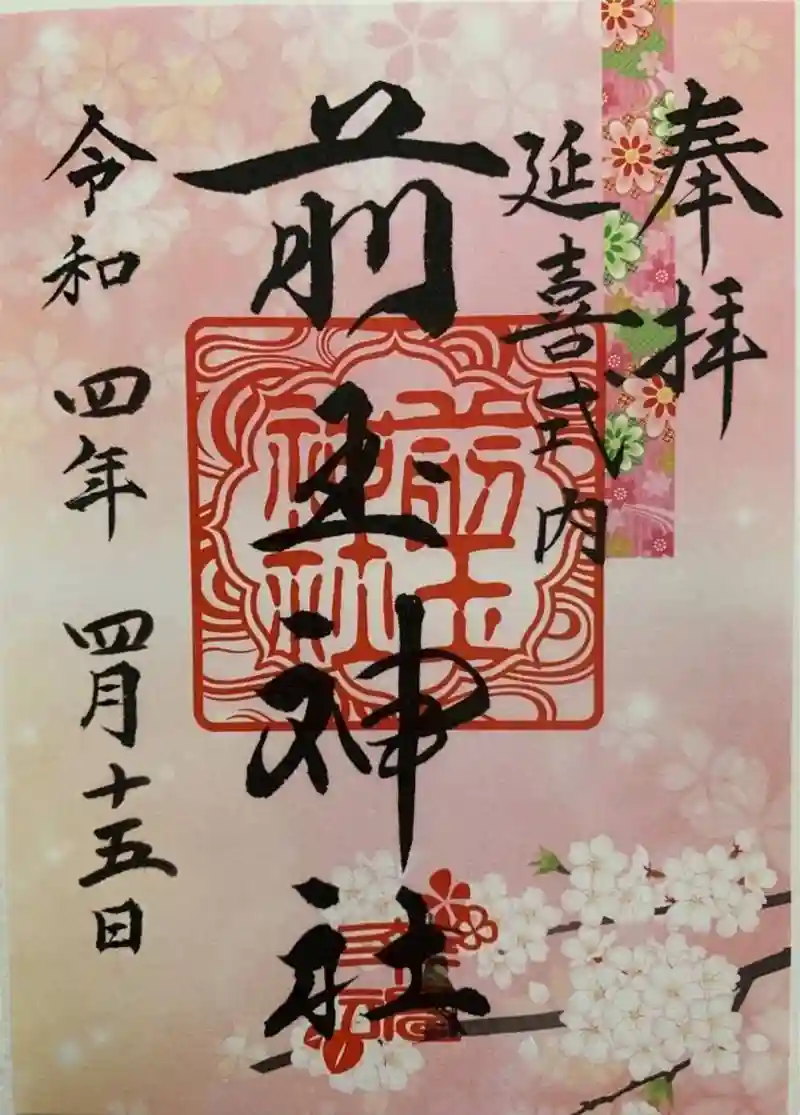 奉拝
延喜式内
前玉神社
前玉
神社
令和 四年 四月十五日